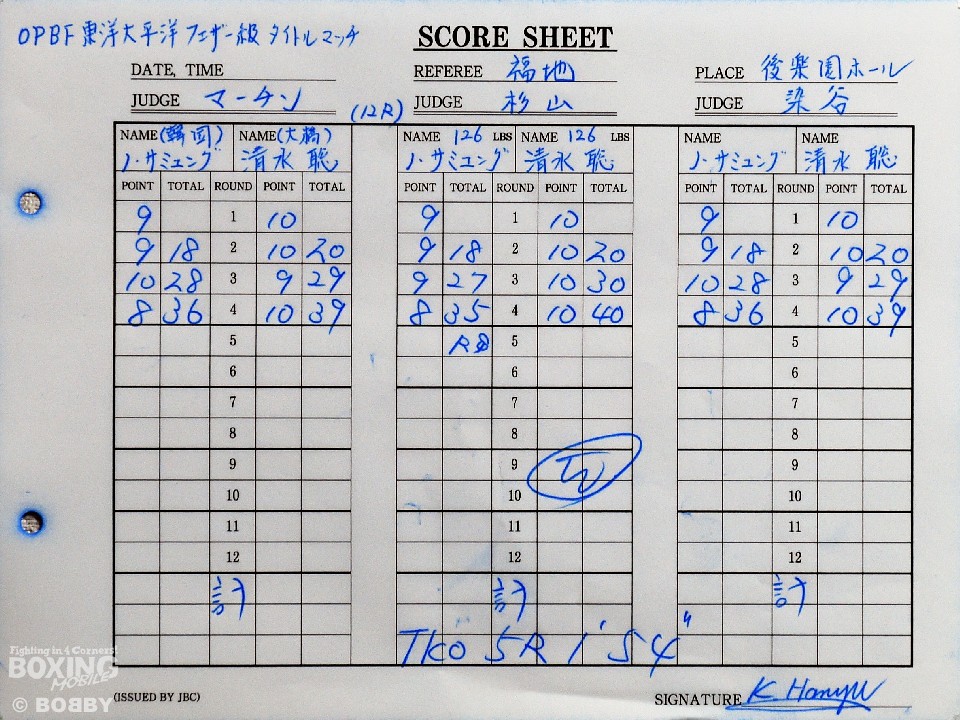 OPBF 東洋太平洋フェザー級タイトルマッチ
SCORE SHEET
DATE, TIME REFEREE 福地 PLACE 後楽園ホール
JUDGE マーチン (12R) JUDGE 杉山 JUDGE 染谷
NAME (韓国) NAME (大橋) NAME 126 LBS NAME 126 LBS NAME NAME
ノ・サミュング 清水 聡 ノ・サミュング 清水 聡 ノ・サミュング 清水 聡
POINT TOTAL ROUND POINT TOTAL POINT TOTAL ROUND POINT TOTAL POINT TOTAL ROUND POINT TOTAL
9 1 10 9 1 10 9 1 10
9 18 2 10 20 9 18 2 10 20 9 18 2 10 20
10 28 3 9 29 9 27 3 10 30 10 28 3 9 29
8 36 4 10 39 8 35 4 10 40 8 36 4 10 39
5 5 5
6 6 6
7 7 7
8 8 8
9 9 9
10 10 10
11 11 11
12 12 12
計 計 計
TKO 5R 1'54"
Fighting in 4 Corners!
BOXING
MOBILE
© BOBBY
(ISSUED BY JBC) SIGNATURE